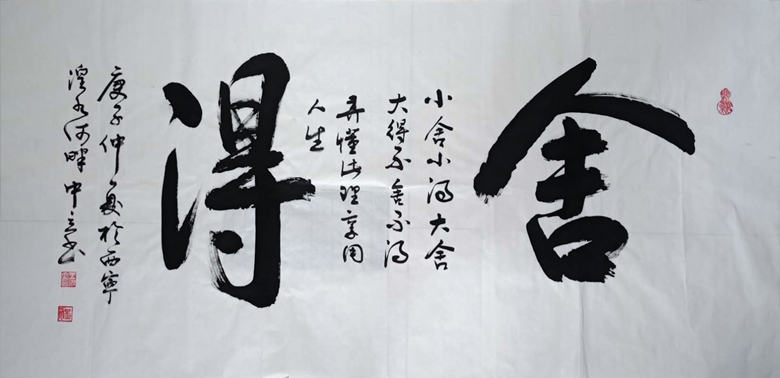 舍
小舍小得大舍
大得不舍不得
弄懂此理享用
人生
得
庚子仲夏於西寧
湟水河畔中立书